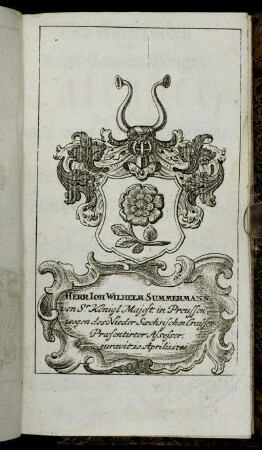 HERR IOH WILHELM SUMMERMANN
von Sr. Königl Majest. in Preussen
wegen des Nieder Sæchsischen Craises
Præsentirter Assessor.
juravit 10 Aprilis